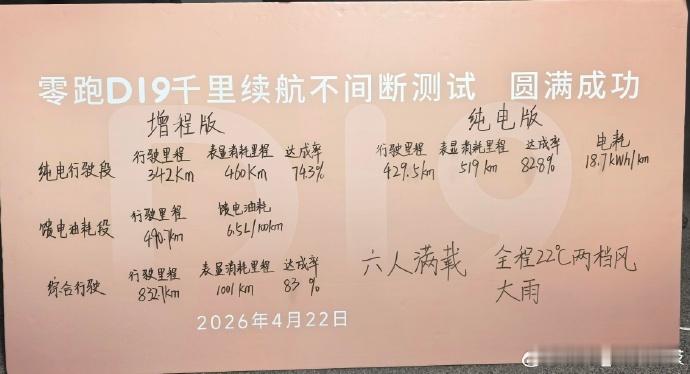 零跑D19千里续航不间断测试 圆满成功
增程版 纯电版
行驶里程 表显消耗里程 达成率 行驶里程 表显消耗里程 达成率 电耗
纯电行驶段 342KM 460KM 743% 429.5km 519km 828% 18.7kWh/km
行驶里程 馈电油耗
馈电油耗段 490.7km 6.5L/100km
行驶里程 表显消耗里程 达成率
综合行驶 832.7km 1001km 83%
六人满载 全程22℃两档风
大雨
2026年4月22日